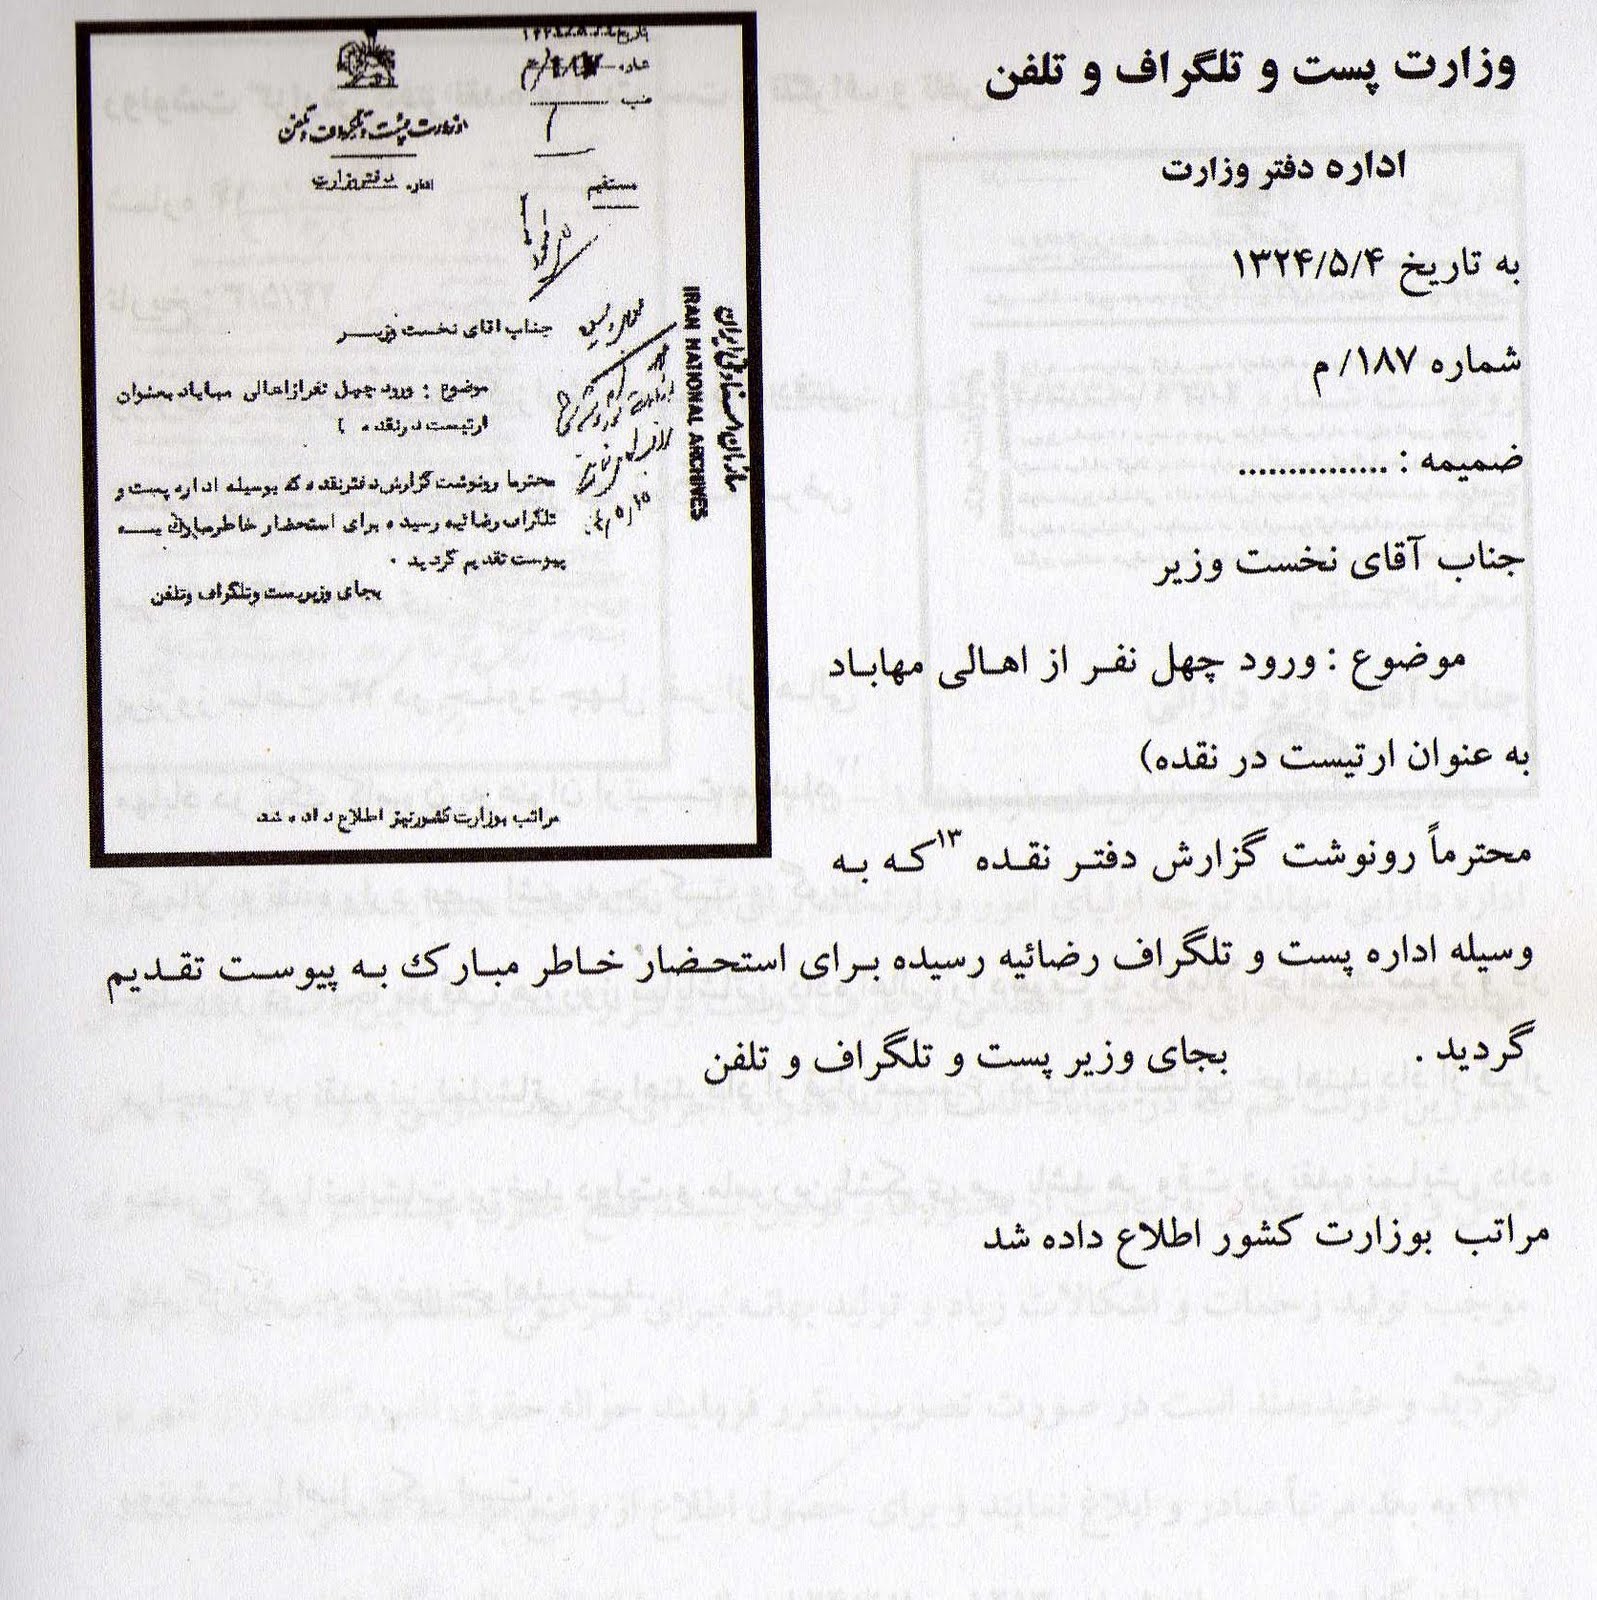 وزارت پست و تلگراف و تلفن
اداره دفتر وزارت
به تاریخ ۱۳۲۴/۵/۴
شماره ۱۸۷/ م
ضمیمه : ...............
جناب آقای نخست وزیر
موضوع : ورود چهل نفر از اهالی مهاباد
به عنوان ارتیست در نقده)
محترماً رونوشت گزارش دفتر نقده ۱۳ که به
وسیله اداره پست و تلگراف رضائیه رسیده برای استحضار خاطر مبارك به پیوست تقدیم
گردید . بجای وزیر پست و تلگراف و تلفن
مراتب بوزارت کشور اطلاع داده شد
وزارت پست و تلگراف و تلفن
اداره دفتر وزارت
مستقیم
جناب اقای نخست وزیر
موضوع : ورود چهل نفرازاهالی مهاباد بعنوان
ارتیست درنقده )
محترما رونوشت گزارش دفترنقده که بوسیله اداره پست و
تلگراف رضائیه رسیده برای استحضار خاطرمبارك به
پیوست تقدیم گردید .
بجای وزیرپست وتلگراف وتلفن
مراتب بوزارت کشورنیز اطلاع داده شد
سازمان اسناد ملی ایران
IRAN NATIONAL ARCHIVES